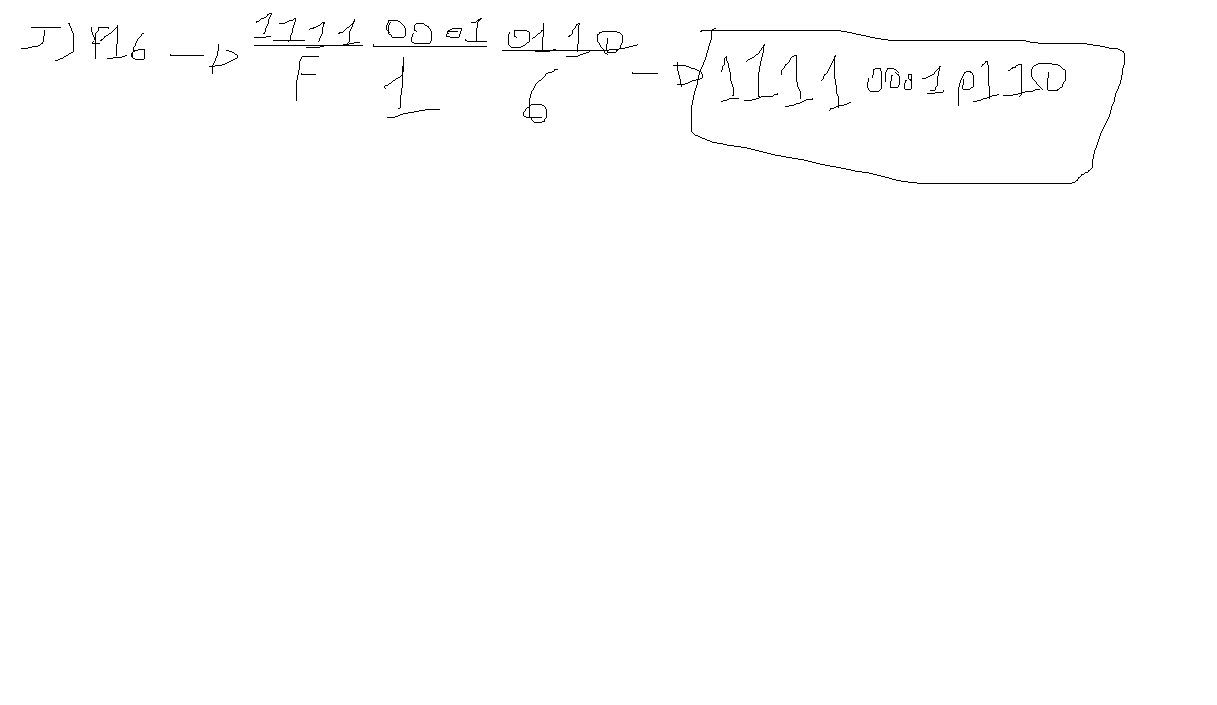 J) F16 → 1111 0001 0110 → 1111 0001 0110
F 1 6